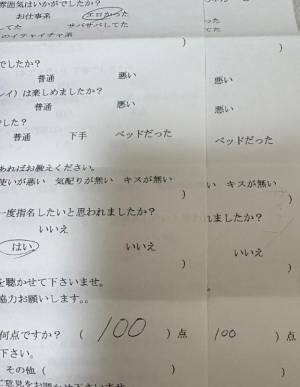 雰囲気はいかがでしたか？
お仕事系　エロかった
してた　サバサバしてた　ってた
のイチャイチャ系
)　)
でしたか？
普通　悪い　悪い
レイ）は楽しめましたか？
普通　悪い　悪い
した？
普通　下手　ベッドだった　ベッドだった
あればお教えください。
使いが悪い　気配りが無い　キスが無い　い　キスが無い
)　)
一度指名したいと思われましたか？　れましたか？
いいえ
はい　いいえ　いいえ
を聴かせて下さいませ。
協力お願いします。。
何点ですか？（　100　）点　100　）点
下さい。
その他（　）　）
ご意見をお聞かせ下さいませ